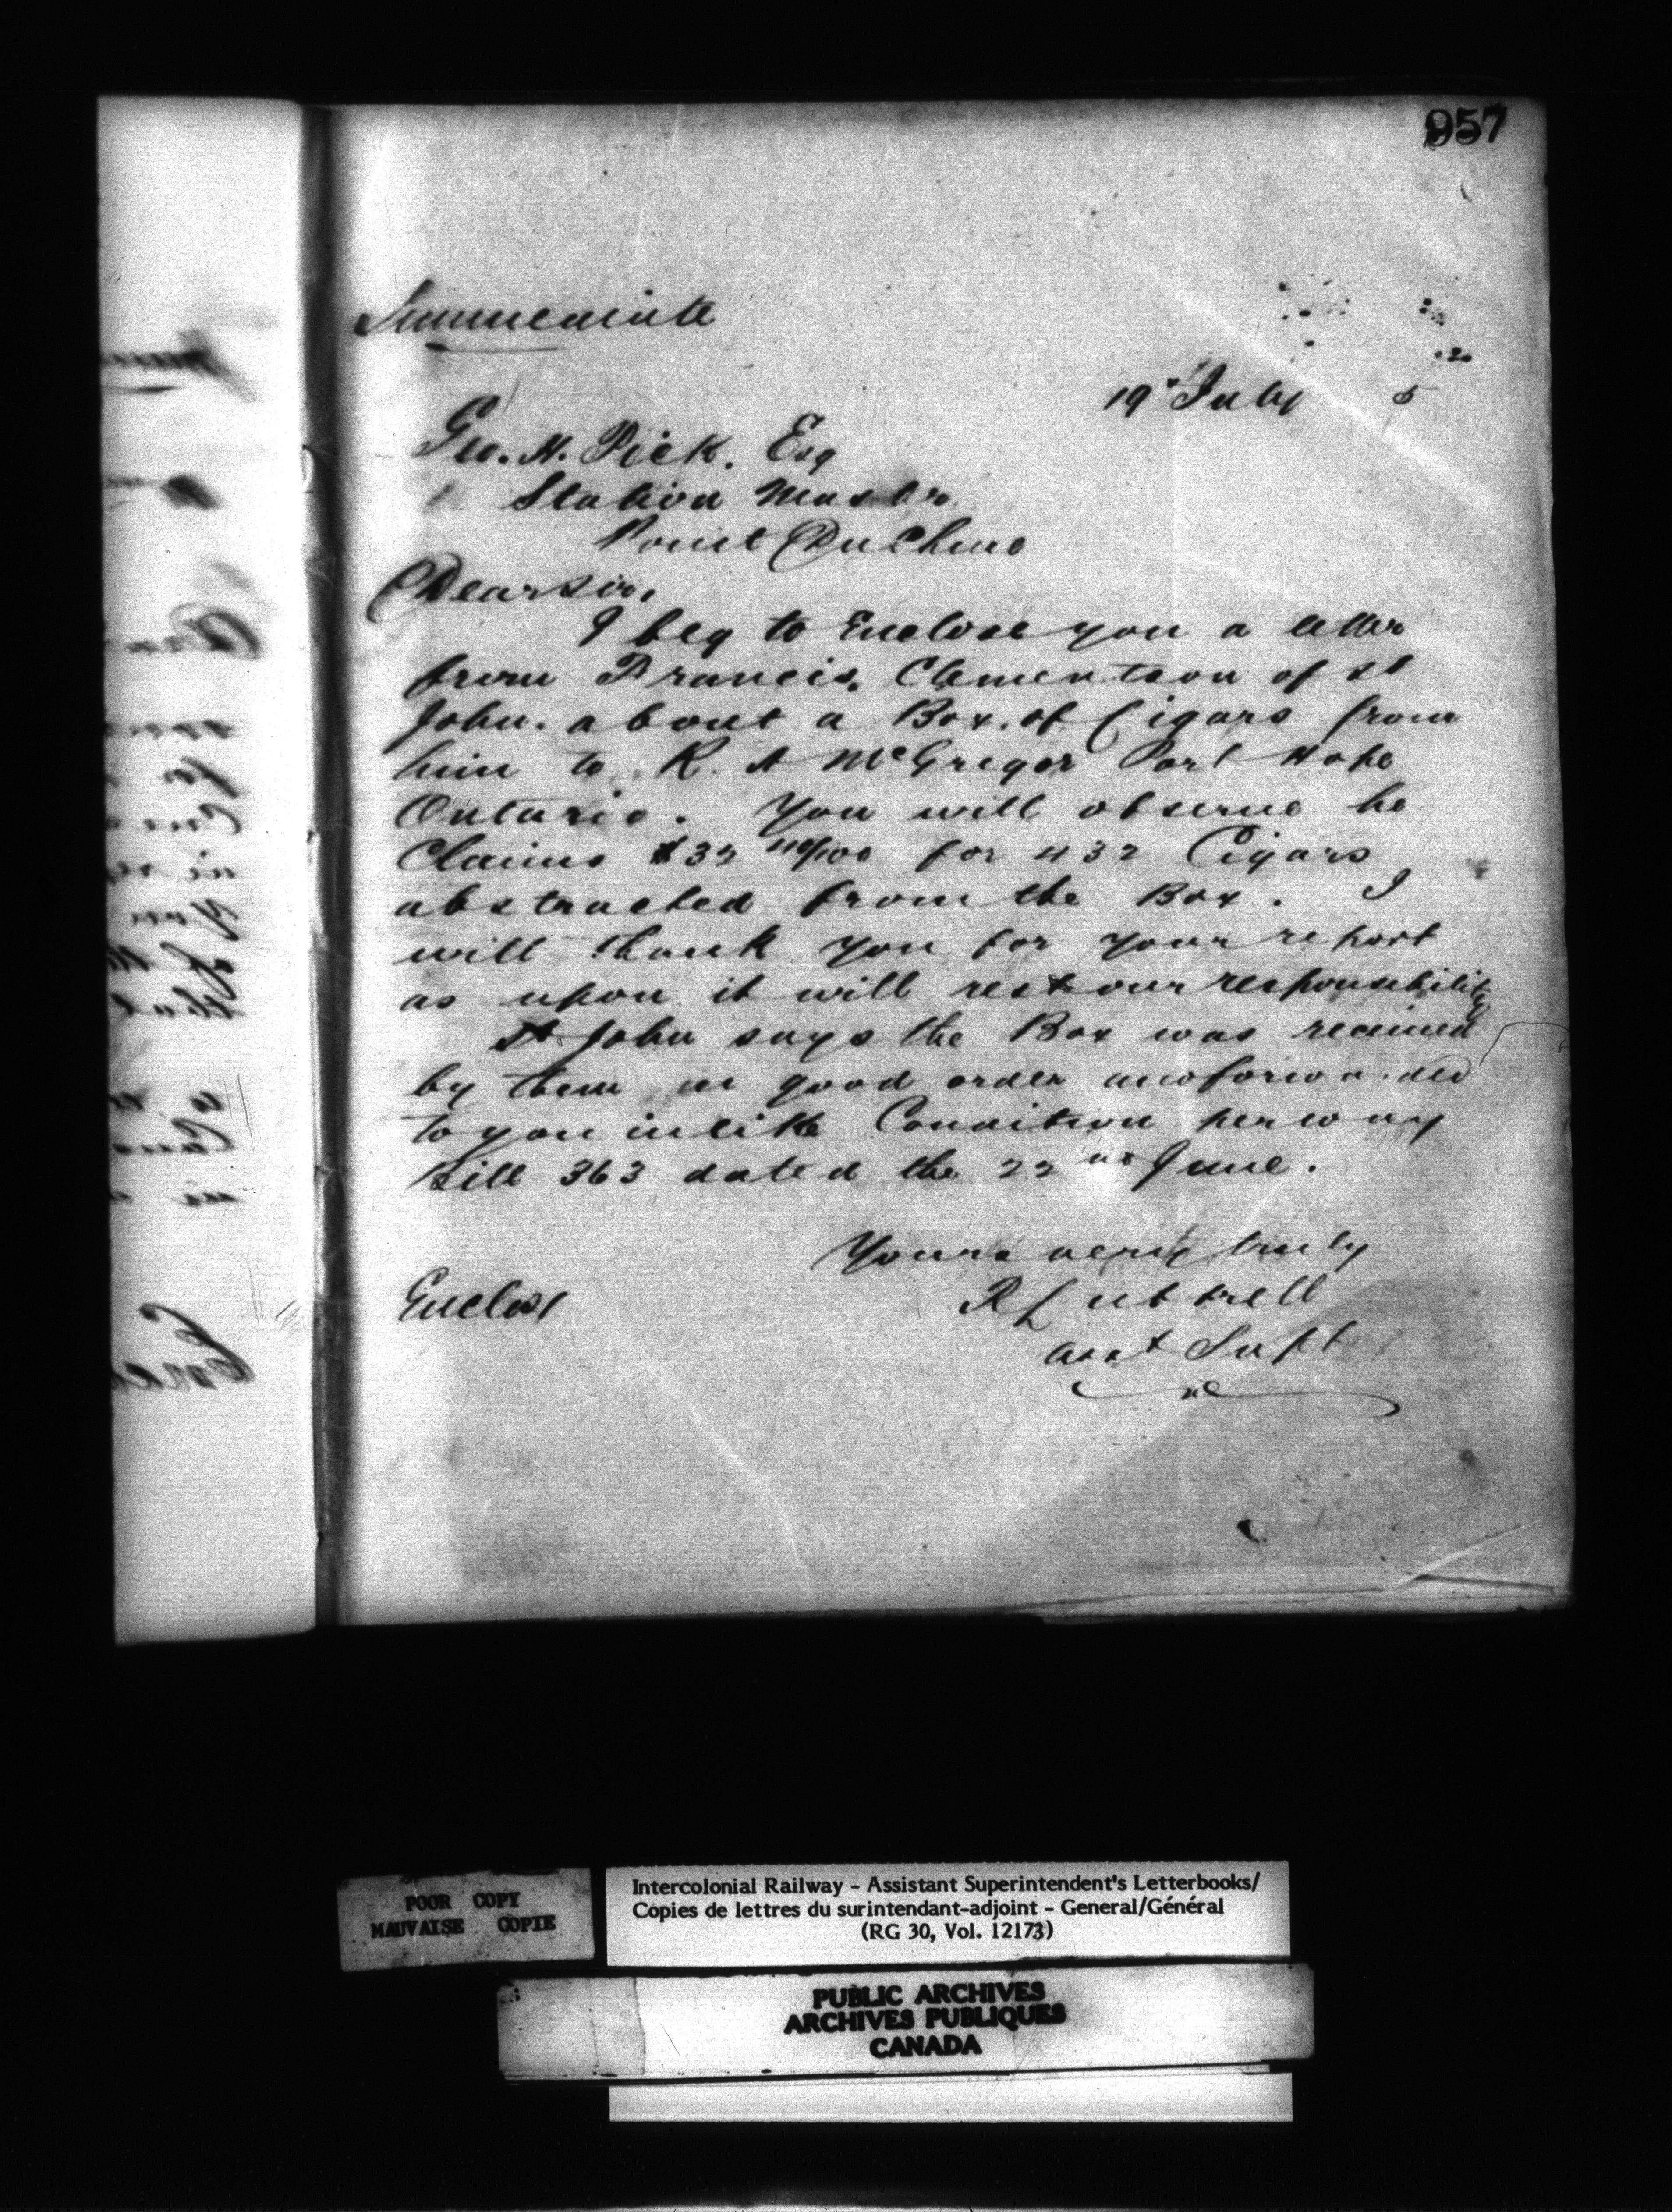 957
Immediate
19th July 5
Geo. H. Pick. Esq
Station Master
Point DuChene
Dear Sir,
I beg to Enclose you a letter
from Francis Clementson of St
John. about a Box. of Cigars from
him to R. A McGregor Port Hope
Ontario. You will observe he
Claims $32 40/100 for 432 Cigars
abstracted from the Box. I
will thank you for your report
as upon it will rest our responsibility
St John says the Box was received
by them in good order and forwarded
to you in like Condition per way
bill 363 dated the 22nd June.
Yours very truly
Enclos
R Luttrell
Asst Supt
POOR COPY
MAUVAISE COPIE
Intercolonial Railway - Assistant Superintendent's Letterbooks/
Copies de lettres du surintendant-adjoint - General/Général
(RG 30, Vol. 12173)
PUBLIC ARCHIVES
ARCHIVES PUBLIQUES
CANADA